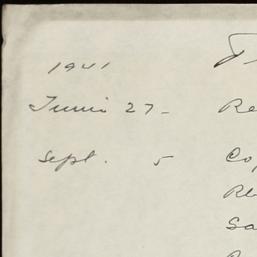 1941
Junii 27 - Re
Sept. 5 Co
Rl
Sa